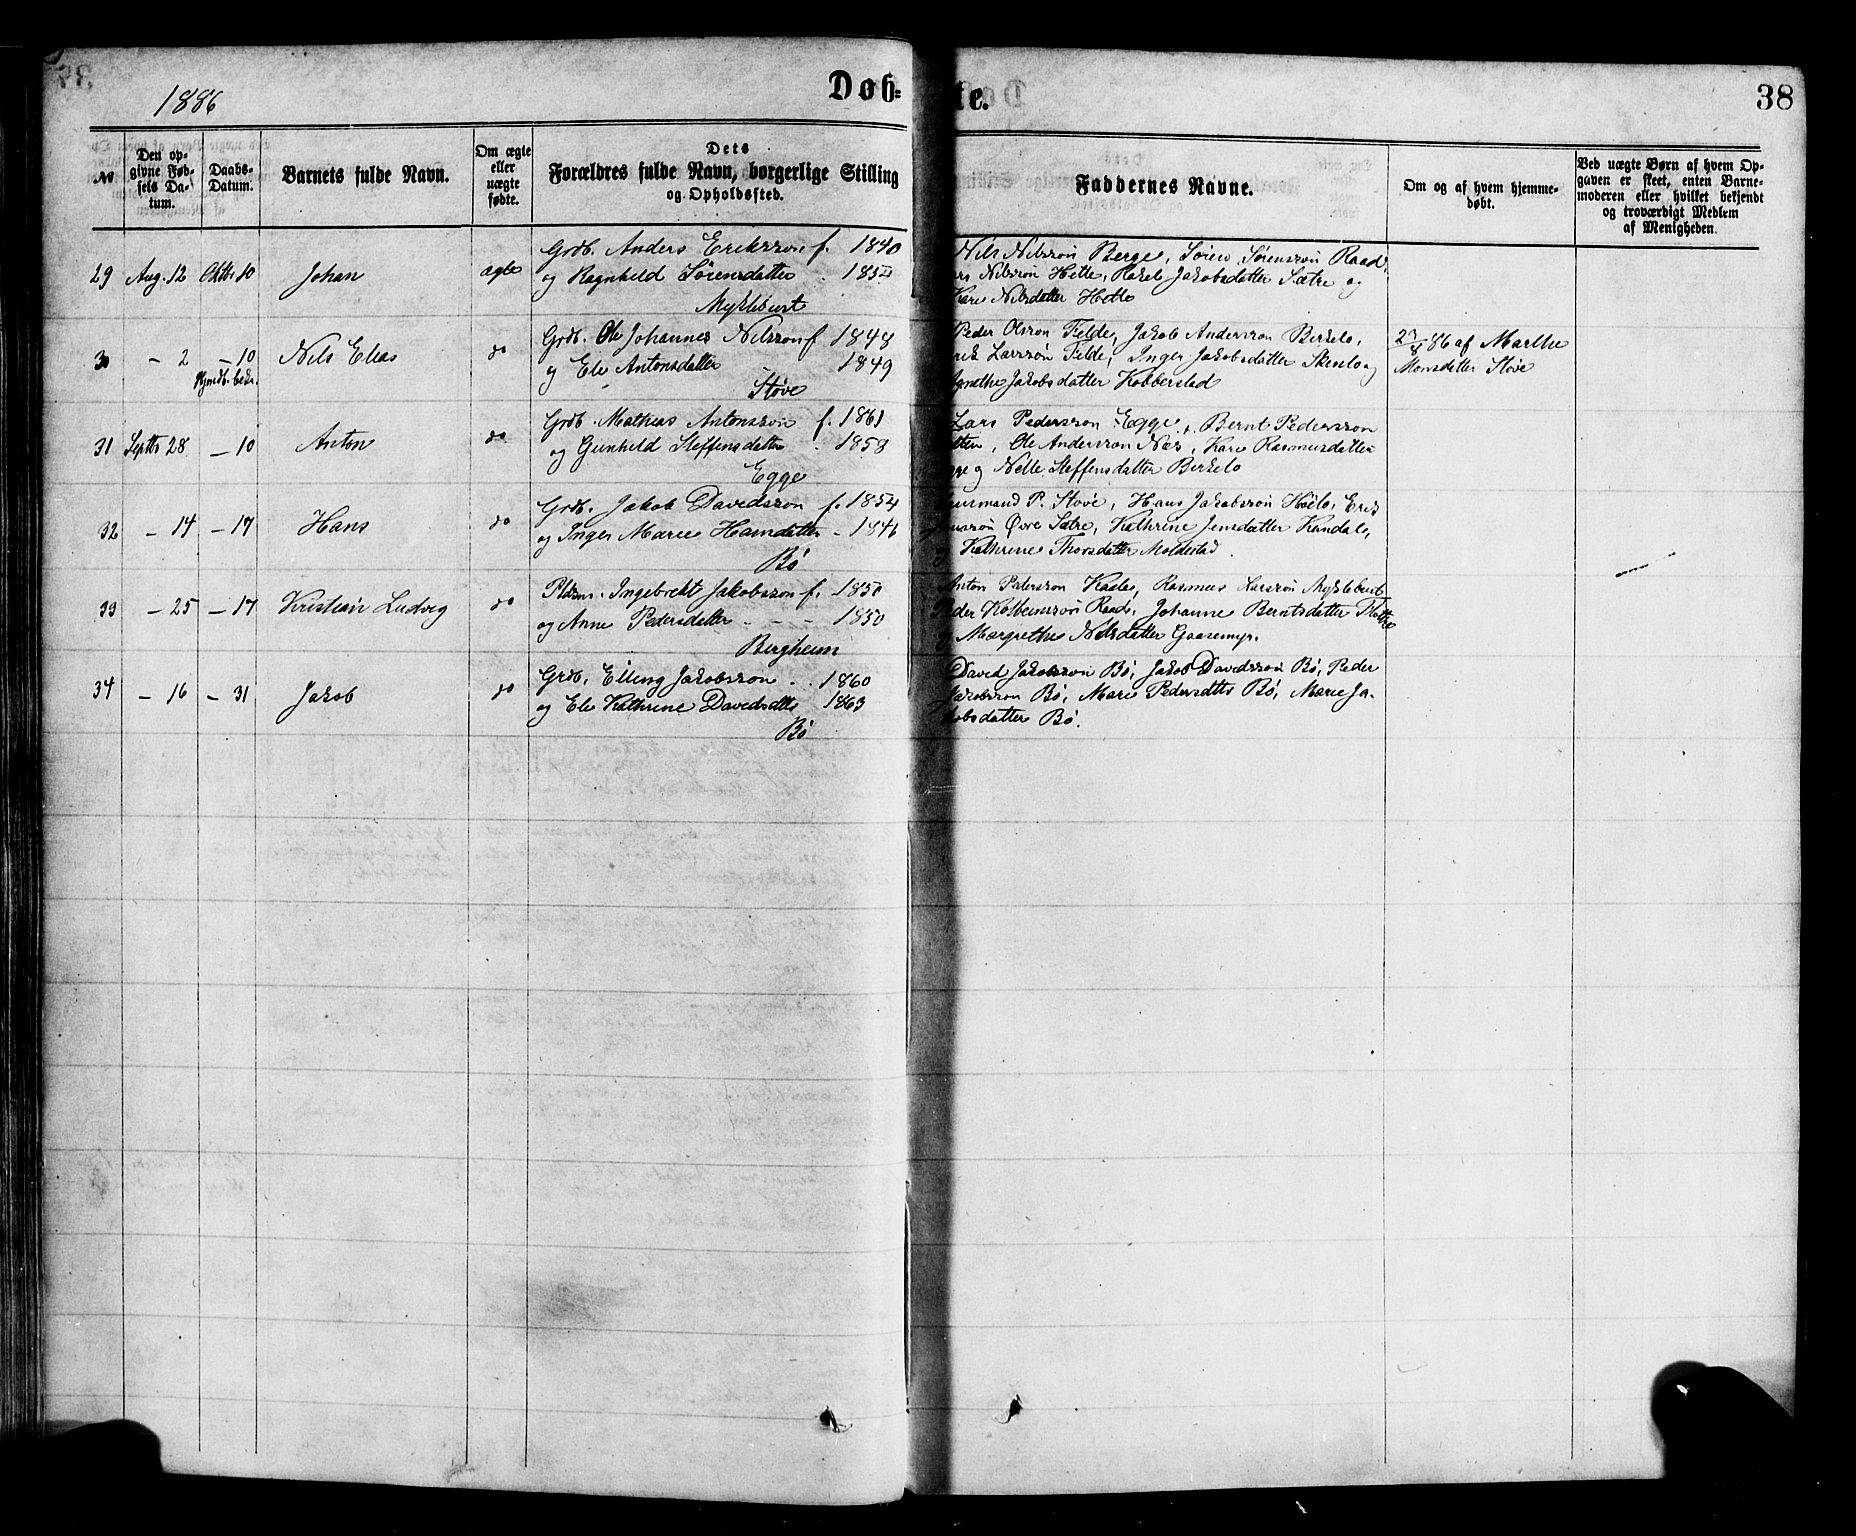 1886
Døb=
te.
38
№
Den op-
givne Fød-
sels Da-
tum.
Daabs-
Datum.
Barnets fulde Navn.
Om ægte
eller
uægte
fødte.
Dets
Forældres fulde Navn, borgerlige Stilling
og Opholdssted.
Faddernes Navne.
Om og af hvem hjemme-
døbt.
Ved uægte Børn af hvem Op-
gaven er skeet, enten Barne-
moderen eller hvilket bekjendt
og troværdigt Medlem
af Menigheden.
29 Aug. 12 Oktbr 10 Johan ægte
Grdb. Anders Eriksson f. 1840
og Ragnhild Sørensdatter
Myklebust
Nils Nilsson Berge, Søren Sørensson Raad,
Nilsson Hetle, Rakel Jakobsdatter Sætre og
Kari Nilsdatter Hetle
30 - 2 - 10 Nils Elias do
Hjmdb. bekr.
Grdb. Ole Johannes Nilsson f 1848
og Eli Antonsdatter 1849
Støve
Peder Olsson Felde, Jakob Andersson Birkelo,
Larsson Felde, Inger Jakobsdatter og
Jakobsdatter Kobberstad
27/8 86 af Marthe
Monsdatter Støve
31 Septbr 28 - 10 Anton do
Grdb. Mathias Antonsson f. 1861
og Gunhild Steffensdatter . 1858
Egge
Lars Pedersson Egge, Bernt Pedersson
Ole Andersson Nes, Kari Rasmusdatter
og Nille Steffensdatter Birkelo
32 - 14 - 17 Hans do
Grdb. Jakob Davidsson f. 1854
og Inger Marie Hansdatter - 1846
Bø
P. Støve, Hans Jakobsson
Øvre Sætre, Kathrine Jensdatter Kandal,
Kathrine Thorsdatter Moldestad.
33 - 25 - 17 Kristian Ludvig do
Pldsm. Ingebrekt Jakobsson f. 1850
og Anne Pedersdatter - - - 1850
Bergheim
Anton Pedersson Rasmus Larsson Myklebust,
Peder Raad, Johanne Berntsdatter
Margrethe Nilsdatter Gaasemyr.
34 - 16 - 31 Jakob do
Grdb. Elling Jakobsson . . 1860
og Eli Kathrine Davidsdtr 1863
Bø
David Jakobsson Bø, Jakob Davidsson Bø, Peder
Jakobsson Bø, Marie Pedersdtr Bø, Marie Ja-
kobsdatter Bø.